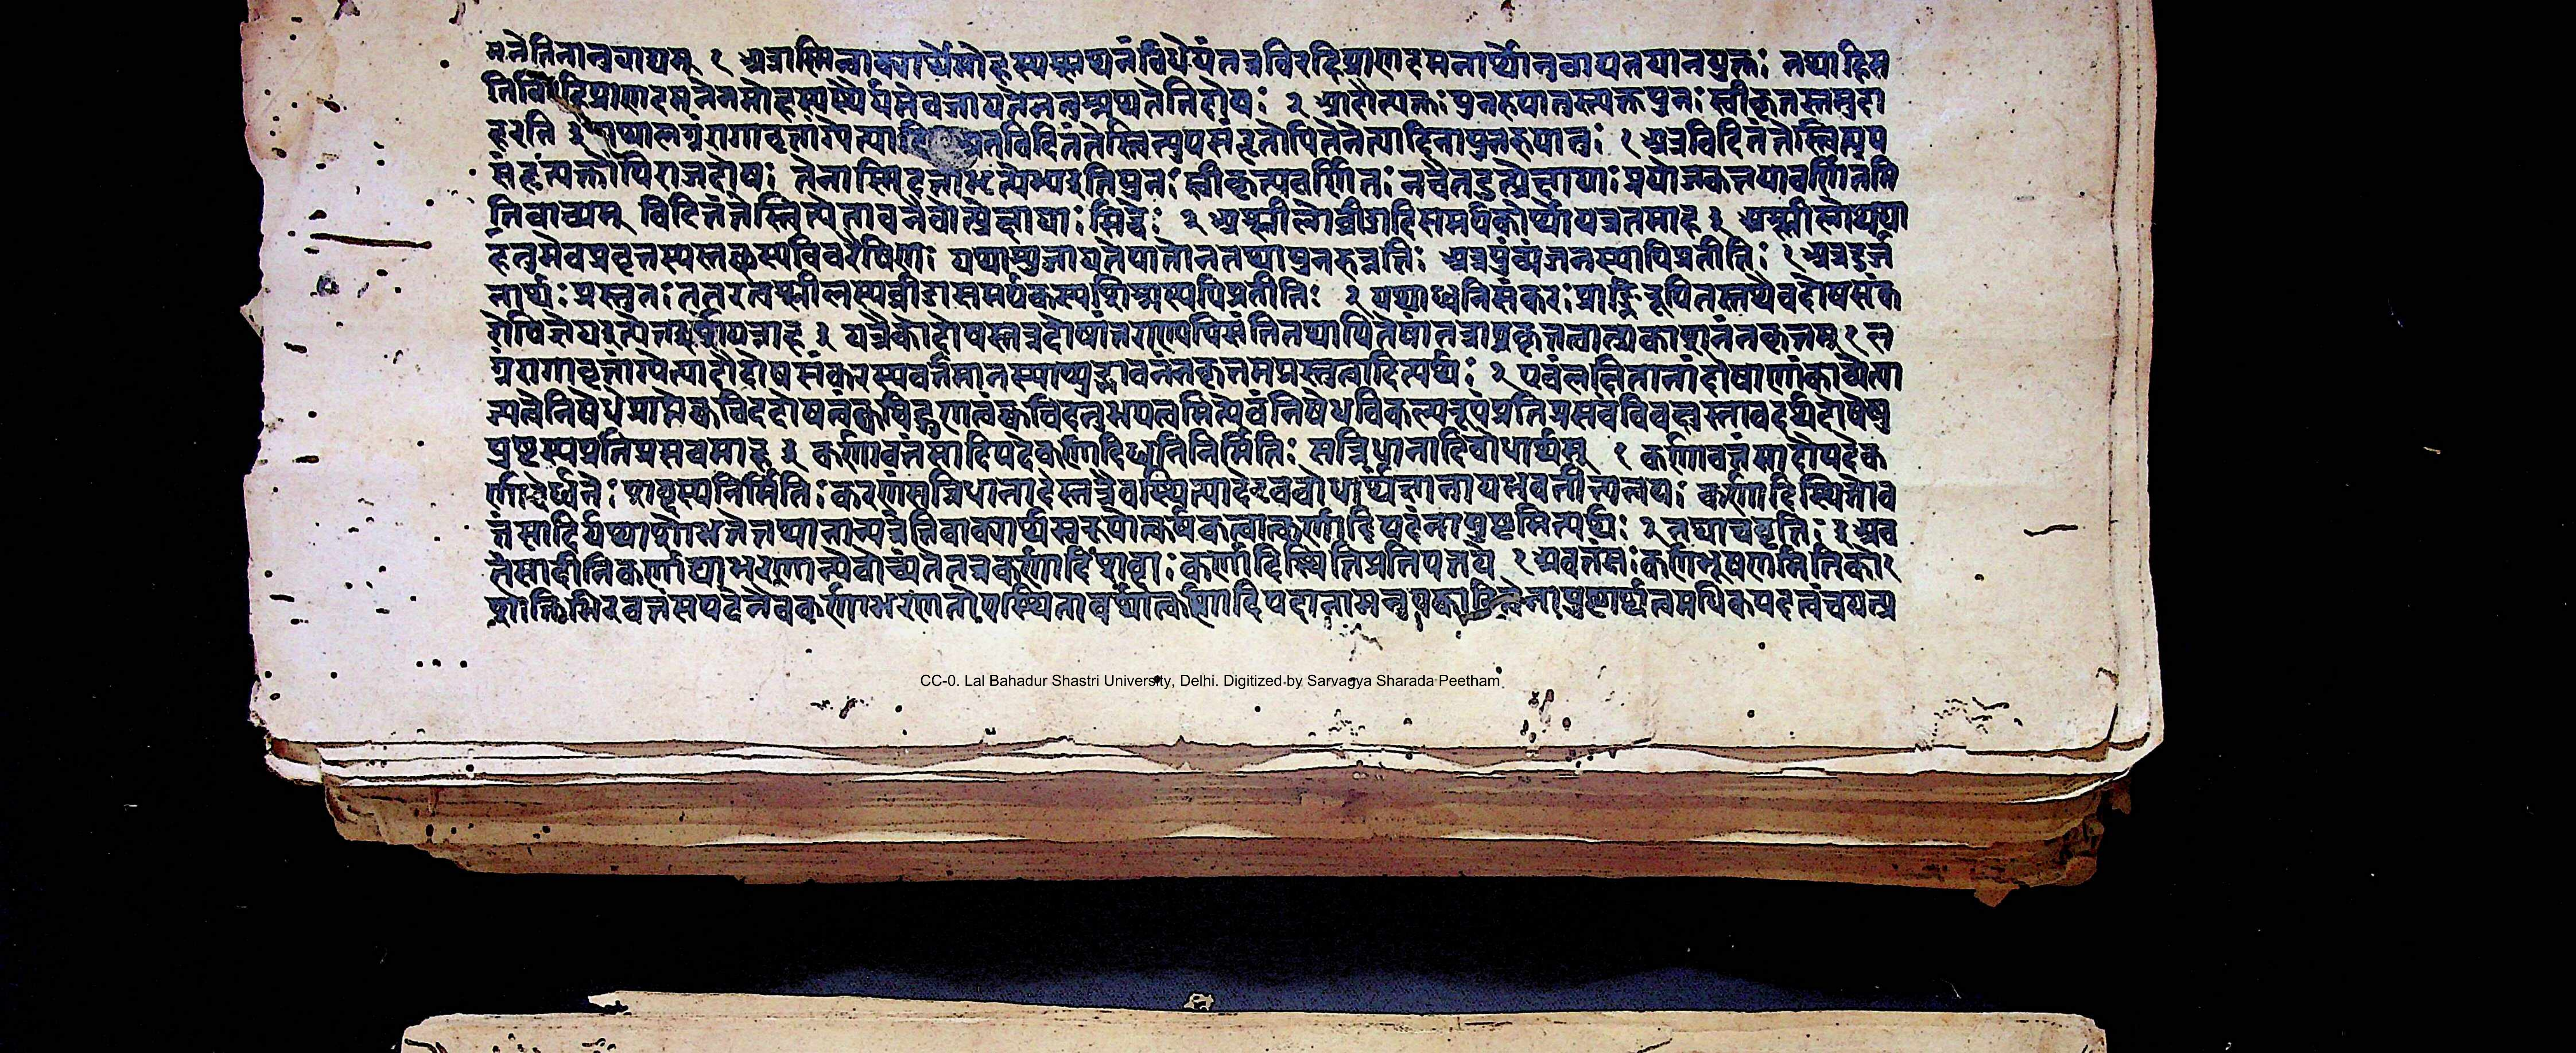 मनेतिनानुवाद्यम् १ अत्रास्मिन्वाक्यार्थेमोहस्य प्रथनंविधेयंतत्रविरहिप्राणदमनार्थोनुवाद्यतयानयुक्तः तथाहिस
तिविरहिप्राणदमनेनमोहस्य स्थैर्यमेवजायतेनतु प्रथतेतिदोषः २ आदौत्यक्तः पुनरुपात्तस्त्यक्तपुनः स्वीकृतस्तमुदा
हरति ३ लग्नंरागावृतांग्येत्यादि अत्रविदितंतेस्त्वित्युपसंहृतोपितेनेत्यादिनापुनरुपात्तः १ अत्रविदितंतेस्त्वित्युप
संहृत्यत्यक्तोपिराजदोषः तेनास्मिदत्ताभृत्येभ्यइतिपुनः स्वीकृत्यवर्णितः नचैतदुत्प्रेक्षायाः प्रयोजकतयावर्णितमि
तिवाच्यम् विदितंतेस्त्वित्येतावतैवोत्प्रेक्षायाः सिद्धेः २ अश्लीलोव्रीडादिसमर्थकोर्थोयत्रतमाह ३ अश्लीलोयथा
हंतुमेवप्रवृत्तस्यस्तब्धस्यविवरैषिणः यथास्यजायतेपातोनतथापुनरुन्नतिः अत्रपुंव्यंजनस्यापिप्रतीतिः १ अत्रदुर्ज
नार्थः प्रस्तुतः ततरत्वश्लीलस्यव्रीडासमर्थकस्यशिश्नस्यापिप्रतीतिः २ यथाध्वनिसंकरः प्राङ्निरूपितस्तथैवदोषसंक
रोपिज्ञेयइत्येतद्दर्शयन्नाह ३ यत्रैकोदोषस्तत्रदोषांतराण्यपिसंतितथापितेषांतत्राप्रकृतत्वात्प्रकाशनंनकृतम् १ ल
ग्नंरागावृतांग्येत्यादौदोषसंकरस्यवर्तमानस्याप्युद्भावनंनकृतमप्रस्तुतत्वादित्यर्थः २ एवंलक्षितानांदोषाणांकाव्येत्या
ज्यत्वेनिषेधेप्राप्तेक्वचिददोषत्वंक्वचिद्गुणत्वंक्वचिदनुभयत्वमित्येवंनिषेधविकल्परूपंप्रतिप्रसवंविवक्षुस्तावदर्थदोषेषु
पुष्टस्यप्रतिप्रसवमाह ३ कर्णावतंसादिपदेकर्णादिध्वनिनिर्मितिः सन्निधानादिबोधार्थम् १ कर्णावतंसादौपदेक
र्णादेर्ध्वनेः शब्दस्यनिर्मितिः करणंसन्निधानादेस्तत्रैवस्थित्यादेरवबोधार्थंज्ञानायभवतीत्यन्वयः कर्णादिस्थितोव
तंसादिर्यथाशोभतेतथानान्यत्रेतिवाक्यार्थस्वरूपोत्कर्षकत्वात्कर्णादिपदंनापुष्टमित्यर्थः २ तथाचवृत्तिः ३ अव
तंसादीनिकर्णाद्याभरणान्येवोच्यंतेतत्रकर्णादिशब्दाः कर्णादिस्थितिप्रतिपत्तये १ अवतंसः कर्णभूषणमितिको२
शोक्तिभिरवतंसपदेनैवकर्णाभरणतोपस्थितावर्थात्कर्णादिपदानामनुपुष्टार्थत्वमधिकपदत्वंचयत्प्र
CC-0. Lal Bahadur Shastri University, Delhi. Digitized by Sarvagya Sharada Peetham